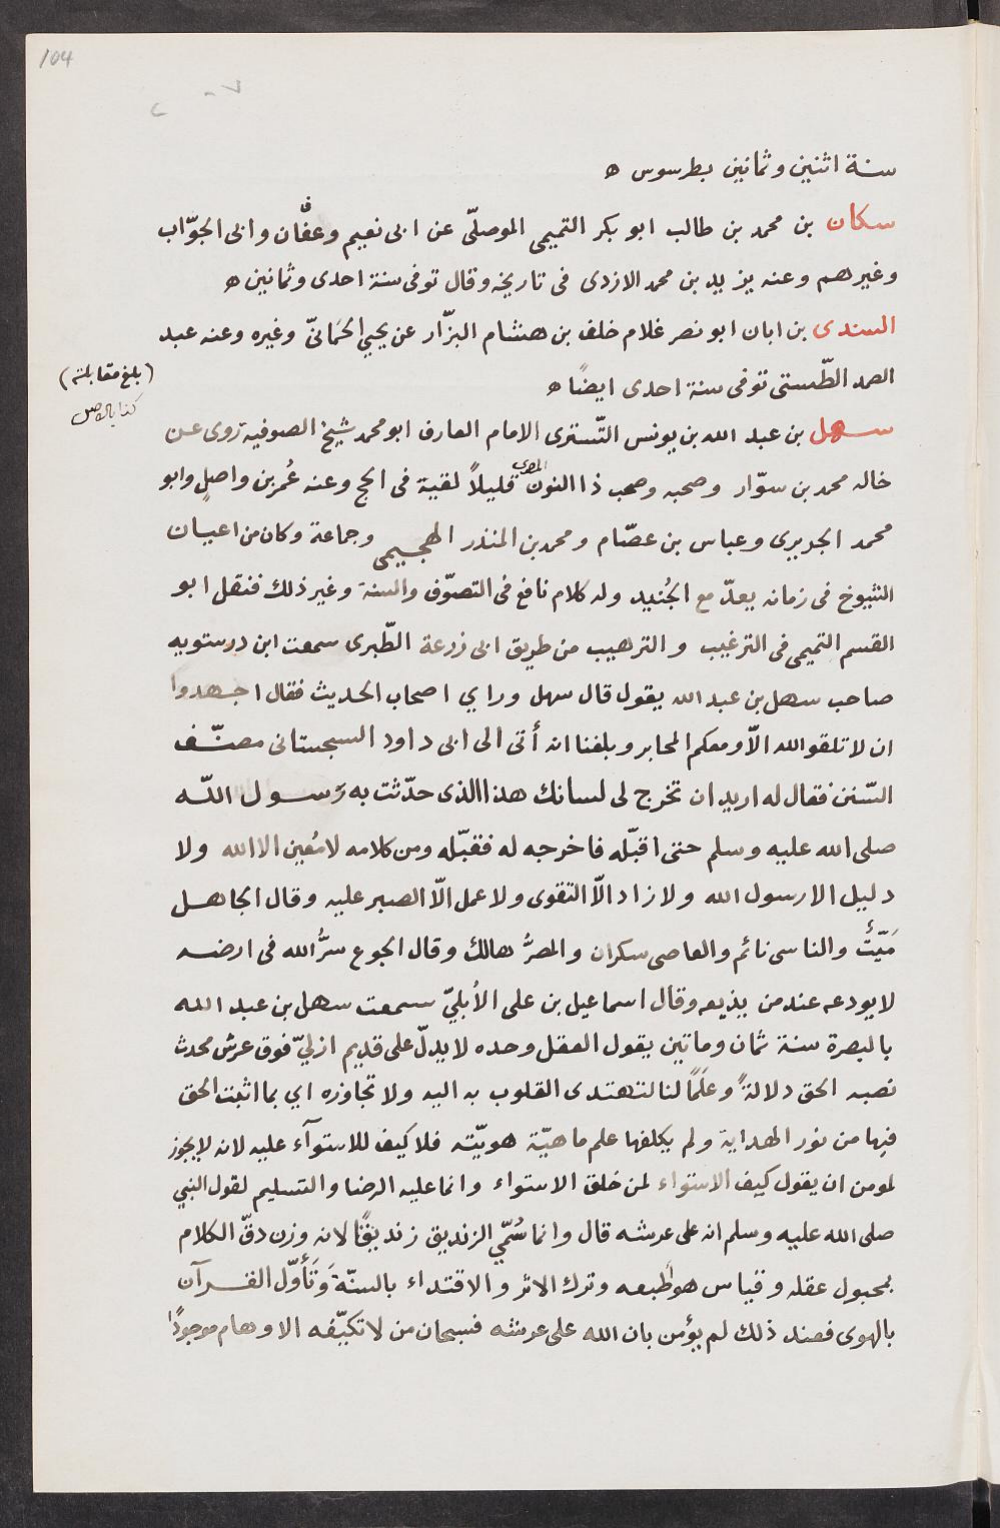 104
سنة اثنين وثمانين بطرسوس ه
سكان بن محمد بن طالب ابو بكر التميمي الموصليّ عن ابى نعيم وعفّان وابى الجوّاب
وغيرهم وعنه يزيد بن محمد الازدى فى تاريخه وقال توفى سنة احدى وثمانين ه
السندى بن ابان ابو نصر غلام خلف بن هشام البزّار عن يحيي الحمانىّ وغيره وعنه عبد
الصمد الطّستى توفى سنة احدى ايضًا ه
(بلغ مقابلته)
كذا بالاصل
سهل بن عبد الله بن يونس التّسترى الامام العارف ابو محمد شيخ الصوفية روى عن
خاله محمد بن سوّار وصحبه وصحب ذا النون المصرى قليلاً لقية فى الحج وعنه عُمر بن واصلٍ وابو
محمد الجريرى وعباس بن عصّام ومحمد بن المنذر الهجيمى وجماعة وكان من اعيان
الشيوخ فى زمانه يعدّ مع الجُنيد وله كلام نافع فى التصوّف والسنة وغير ذلك فنقل ابو
القسم التميمى فى الترغيب والترهيب من طريق ابى زرعة الطّبرى سمعت ابن درستويه
صاحب سهل بن عبد الله يقول قال سهل وراي اصحاب الحديث فقال اجهدوا
ان لا تلقوا الله الاّ ومعكم المحابر وبلغنا انه أتى الى ابى داود السجستانى مصنّف
السّنن فقال له اريد ان تخرج لى لسانك هذا الذى حدّثت به رسول اللّه
صلى الله عليه وسلم حتى اقبّله فاخرجه له فقبّله ومن كلامه لا مُعين الا الله ولا
دليل الا رسول الله ولا زاد الاّ التقوى ولا عمل الاّ الصبر عليه وقال الجاهل
مَيّتٌ والناسى نائم والعاصى سكران والمصرُّ هالك وقال الجوع سرُّ الله فى ارضه
لا يودعه عند من يذيعه وقال اسماعيل بن على الأبليّ سمعت سهل بن عبد الله
بالبصرة سنة ثمان وماتين يقول العقل وحده لا يدلّ على قديم ازليّ فوق عرش محدث
نصبه الحق دلالةً وعلَمًا لنا لتهتدى القلوب به اليه ولا تجاوزه اي بما اثبت الحق
فيها من نور الهداية ولم يكلفها علم ماهيّة هويّته فلا كيف للاستوآء عليه لانه لا يجوز
لمومن ان يقول كيف الاستواء لمن خلق الاستواء وانما عليه الرضا والتسليم لقول النبي
صلى الله عليه وسلم انه على عرشه قال وانما سُمّي الزنديق زنديقًا لانه وزن دقّ الكلام
بمحبول عقله وقياس هوا طبعه وترك الاثر والاقتداء بالسنّة وَتَأَوّل القرآن
بالهوى فعند ذلك لم يؤمن بان الله على عرشه فسبحان من لا تكيّفه الاوهام موجودًا